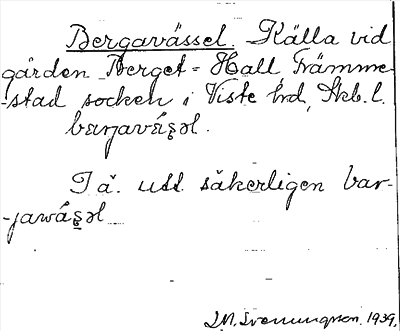 Bergavässel. Källa vid
gården Berget - Hall, Främme-
-stad socken i Viste hrd, Skb. l.
bærjavǽsəl.
I ä. utt. säkerligen bar-
-jawǽsəl
1939.